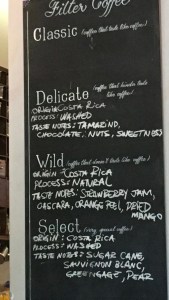 Filter Coffee
Classic (coffee that tastes like coffee)
Delicate (coffee that kinda tastes like coffee)
ORIGIN: COSTA RICA
PROCESS: WASHED
TASTE NOTES: TAMARIND,
CHOCOLATE, NUTS, SWEETNESS
Wild (coffee that doesn't taste like coffee)
ORIGIN: COSTA RICA
PROCESS: NATURAL
TASTE NOTES: STRAWBERRY JAM,
CASCARA, ORANGE PEEL, DRIED
MANGO
Select (very special coffee)
ORIGIN: COSTA RICA
PROCESS: WASHED
TASTE NOTES: SUGAR CANE,
SAUVIGNON BLANC,
GREENGAGE, PEAR